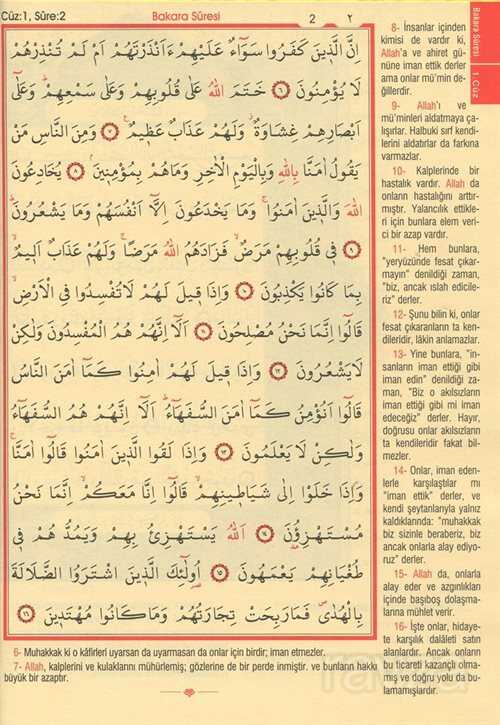 Cüz:1, Sûre:2
Bakara Sûresi
2
٢
Bakara Sûresi
1. CÜZ
اِنَّ الَّذ۪ينَ كَفَرُوا سَوَٓاءٌ عَلَيْهِمْ ءَاَنْذَرْتَهُمْ اَمْ لَمْ تُنْذِرْهُمْ
لَا يُؤْمِنُونَ ﴿٦﴾ خَتَمَ اللّٰهُ عَلٰى قُلُوبِهِمْ وَعَلٰى سَمْعِهِمْۜ وَعَلٰٓى
اَبْصَارِهِمْ غِشَاوَةٌۘ وَلَهُمْ عَذَابٌ عَظ۪يمٌ۟ ﴿٧﴾ وَمِنَ النَّاسِ مَنْ
يَقُولُ اٰمَنَّا بِاللّٰهِ وَبِالْيَوْمِ الْاٰخِرِ وَمَاهُمْ بِمُؤْمِن۪ينَۢ ﴿٨﴾ يُخَادِعُونَ
اللّٰهَ وَالَّذ۪ينَ اٰمَنُواۚ وَمَا يَخْدَعُونَ اِلَّٓا اَنْفُسَهُمْ وَمَا يَشْعُرُونَۜ
﴿٩﴾ ف۪ي قُلُوبِهِمْ مَرَضٌۙ فَزَادَهُمُ اللّٰهُ مَرَضًاۚ وَلَهُمْ عَذَابٌ اَل۪يمٌۙ
بِمَا كَانُوا يَكْذِبُونَ ﴿١٠﴾ وَاِذَا ق۪يلَ لَهُمْ لَاتُفْسِدُوا فِي الْاَرْضِۙ
قَالُٓوا اِنَّمَا نَحْنُ مُصْلِحُونَ ﴿١١﴾ اَلَٓا اِنَّهُمْ هُمُ الْمُفْسِدُونَ وَلٰكِنْ
لَايَشْعُرُونَ ﴿١٢﴾ وَاِذَا ق۪يلَ لَهُمْ اٰمِنُوا كَمَٓا اٰمَنَ النَّاسُ
قَالُٓوا اَنُؤْمِنُ كَمَٓا اٰمَنَ السُّفَهَٓاءُۜ اَلَٓا اِنَّهُمْ هُمُ السُّفَهَٓاءُ
وَلٰكِنْ لَا يَعْلَمُونَ ﴿١٣﴾ وَاِذَا لَقُوا الَّذ۪ينَ اٰمَنُوا قَالُٓوا اٰمَنَّاۚ
وَاِذَا خَلَوْا اِلٰى شَيَاط۪ينِهِمْۙ قَالُٓوا اِنَّا مَعَكُمْۙ اِنَّمَا نَحْنُ
مُسْتَهْزِؤُ۫نَ ﴿١٤﴾ اَللّٰهُ يَسْتَهْزِئُ بِهِمْ وَيَمُدُّهُمْ ف۪ي
طُغْيَانِهِمْ يَعْمَهُونَ ﴿١٥﴾ اُو۬لٰٓئِكَ الَّذ۪ينَ اشْتَرَوُا الضَّلَالَةَ
بِالْهُدٰىۖ فَمَارَبِحَتْ تِجَارَتُهُمْ وَمَاكَانُوا مُهْتَد۪ينَ ﴿١٦﴾
6- Muhakkak ki o kâfirleri uyarsan da uyarmasan da onlar için birdir; iman etmezler.
7- Allah, kalplerini ve kulaklarını mühürlemiş; gözlerine de bir perde inmiştir. ve bunların hakkı
büyük bir azaptır.
8- İnsanlar içinden
kimisi de vardır ki,
Allah'a ve ahiret gü-
nüne iman ettik derler
ama onlar mü'min de-
ğillerdir.
9- Allah'ı ve
mü'minleri aldatmaya ça-
lışırlar. Halbuki sırf kendi-
lerini aldatırlar da farkına
varmazlar.
10- Kalplerinde bir
hastalık vardır. Allah da
onların hastalığını arttır-
mıştır. Yalancılık ettikle-
ri için bunlara elem veri-
ci bir azap vardır.
11- Hem bunlara,
"yeryüzünde fesat çıkar-
mayın" denildiği zaman,
"biz, ancak ıslah edicile-
riz" derler.
12- Şunu bilin ki, onlar
fesat çıkaranların ta ken-
dileridir, lâkin anlamazlar.
13- Yine bunlara, "in-
sanların iman ettiği gibi
iman edin" denildiği za-
man, "Biz o akılsızların
iman ettiği gibi mi iman
edeceğiz" derler. Hayır,
doğrusu onlar akılsızların
ta kendileridir fakat bil-
mezler.
14- Onlar, iman eden-
lerle karşılaştılar mı
"iman ettik" derler, ve
kendi şeytanlarıyla yalnız
kaldıklarında: "muhakkak
biz sizinle beraberiz, biz
ancak onlarla alay ediyo-
ruz" derler.
15- Allah da, onlarla
alay eder ve azgınlıkları
içinde başıboş dolaşma-
larına mühlet verir.
16- İşte onlar, hidaye-
te karşılık dalâleti satın
alanlardır. Ancak onların
bu ticareti kazançlı olma-
mış ve doğru yolu da bu-
lamamışlardır.